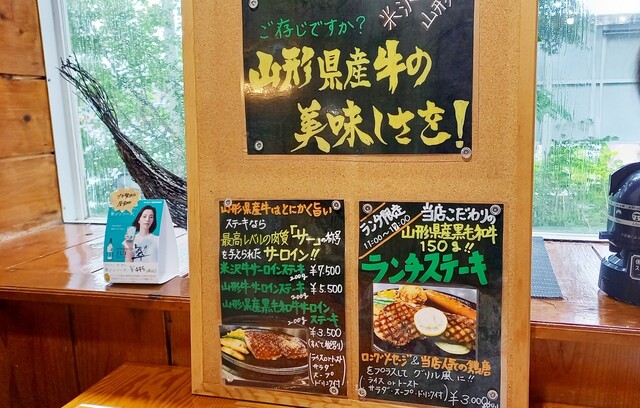 ご存じですか?
米沢
山形
山形県産牛の
美味しさを!
山形県産牛はとにかく旨い
ステーキなら
最高レベルの肉質「サー」の称号
を与えられた サーロイン!!
米沢牛サーロインステーキ
200g
¥7,500
山形牛サーロインステーキ
200g
¥5,500
山形県産黒毛和牛サーロイン
ステーキ
200g
¥3,500
(すべて税別)
ライス or トースト
サラダ
スープ
ドリンク付
ランチ限定
11:00〜18:00
当店こだわりの
山形県産黒毛和牛
150g!!
ランチステーキ
ロングソーセージ&当店人気の鶏唐
をプラスして グリル風に!!
ライス or トースト
サラダ・スープ・ドリンク付
¥3,000